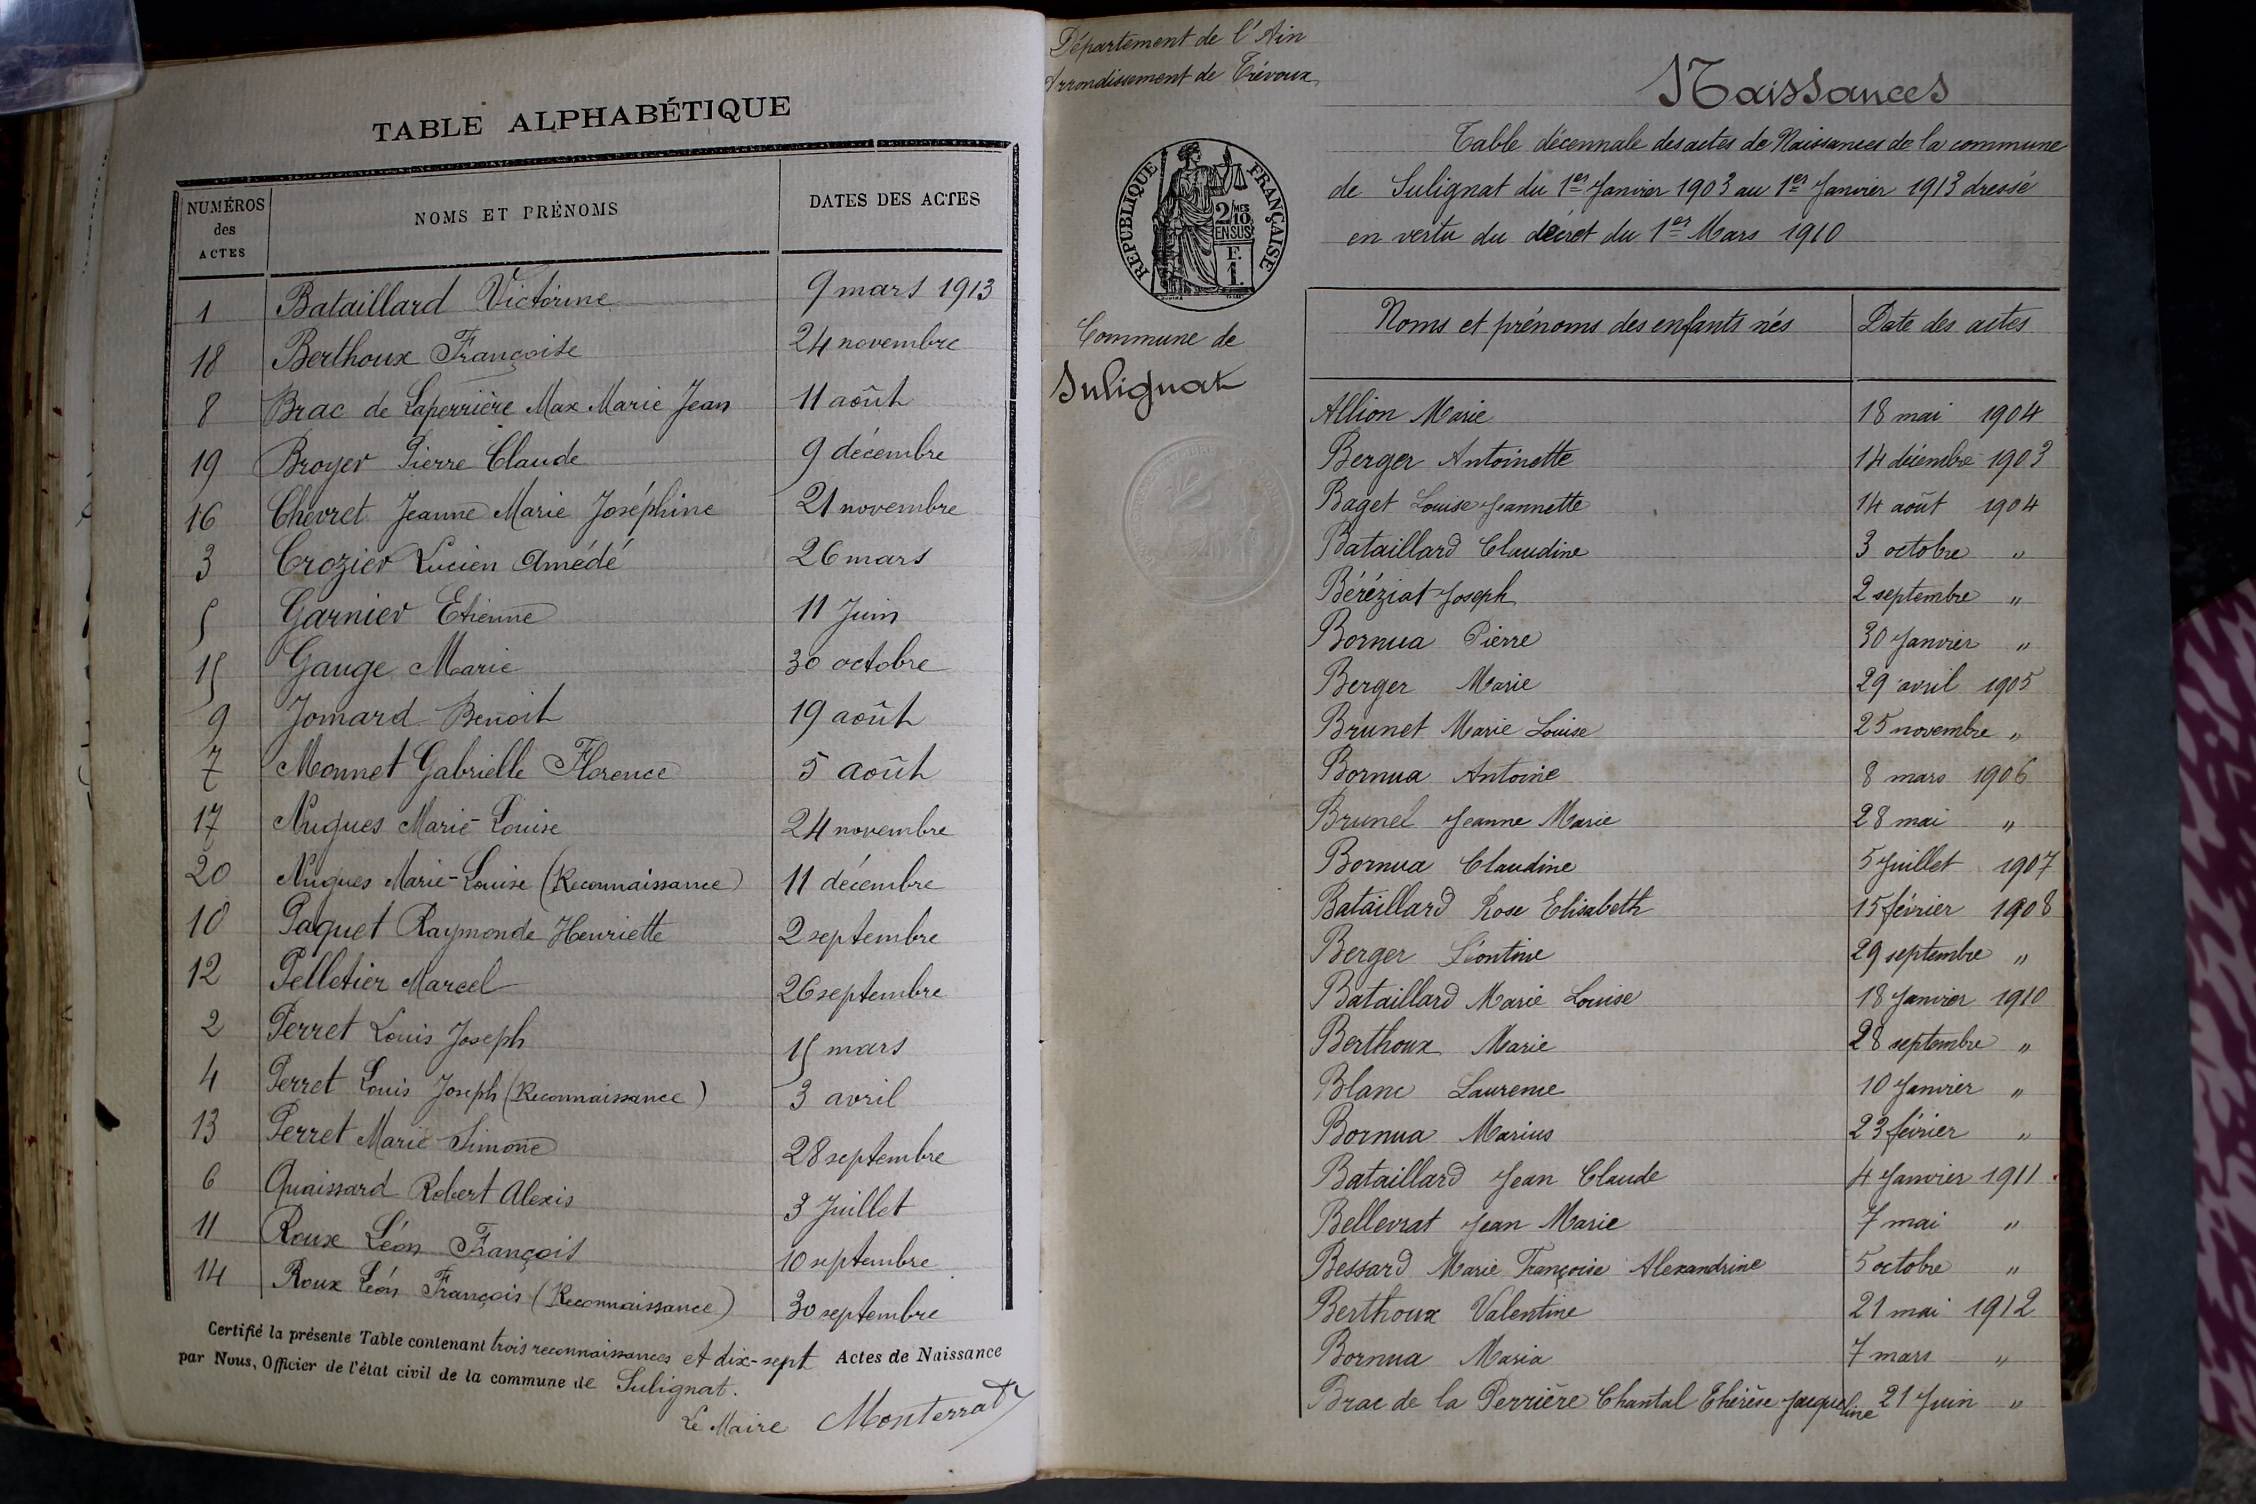 TABLE ALPHABÉTIQUE
NUMÉROS des ACTES NOMS ET PRÉNOMS DATES DES ACTES
1 Bataillard Victorine 9 mars 1913
18 Berthoux Françoise 24 novembre
8 Brac de Laperrière Max Marie Jean 11 août
19 Broyer Pierre Claude 9 décembre
16 Chevret Jeanne Marie Joséphine 21 novembre
3 Crozier Lucien Amédé 26 mars
5 Garnier Etienne 11 Juin
15 Gauge Marie 30 octobre
9 Jomard Benoit 19 août
7 Monnet Gabrielle Florence 5 août
17 Nugues Marie-Louise 24 novembre
20 Nugues Marie-Louise (Reconnaissance) 11 décembre
10 Paquet Raymonde Henriette 2 septembre
12 Pelletier Marcel 26 septembre
2 Perret Louis Joseph 15 mars
4 Perret Louis Joseph (Reconnaissance) 3 avril
13 Perret Marie Simone 28 septembre
6 Quaissard Robert Alexis 3 Juillet
11 Roux Léon François 10 septembre
14 Roux Léon François (Reconnaissance) 30 septembre
Certifié la présente Table contenant trois reconnaissances et dix-sept Actes de Naissance
par Nous, Officier de l'état civil de la commune de Sulignat.
Le Maire Monterrat
Département de l'Ain
Arrondissement de Trévoux
RÉPUBLIQUE FRANÇAISE
2/10 MES
EN SUS
F.
1.
Commune de
Sulignat
Naissances
Table décennale des actes de Naissances de la commune
de Sulignat du 1er Janvier 1903 au 1er Janvier 1913 dressé
en vertu du décret du 1er Mars 1910
Noms et prénoms des enfants nés Date des actes
Allion Marie 18 mai 1904
Berger Antoinette 14 décembre 1903
Baget Louise Jeannette 14 août 1904
Bataillard Claudine 3 octobre "
Béréziat Joseph 2 septembre "
Bornua Pierre 30 Janvier "
Berger Marie 29 avril 1905
Brunet Marie Louise 25 novembre "
Bornua Antoine 8 mars 1906
Brunel Jeanne Marie 28 mai "
Bornua Claudine 5 Juillet 1907
Bataillard Rose Elisabeth 15 février 1908
Berger Léontine 29 septembre "
Bataillard Marie Louise 18 Janvier 1910
Berthoux Marie 28 septembre "
Blanc Laurence 10 Janvier "
Bornua Marius 23 février "
Bataillard Jean Claude 4 Janvier 1911
Bellevrat Jean Marie 7 mai "
Bessard Marie Françoise Alexandrine 5 octobre "
Berthoux Valentine 21 mai 1912
Bornua Maria 7 mars "
Brac de la Perrière Chantal Thérèse Jacqueline 21 Juin "